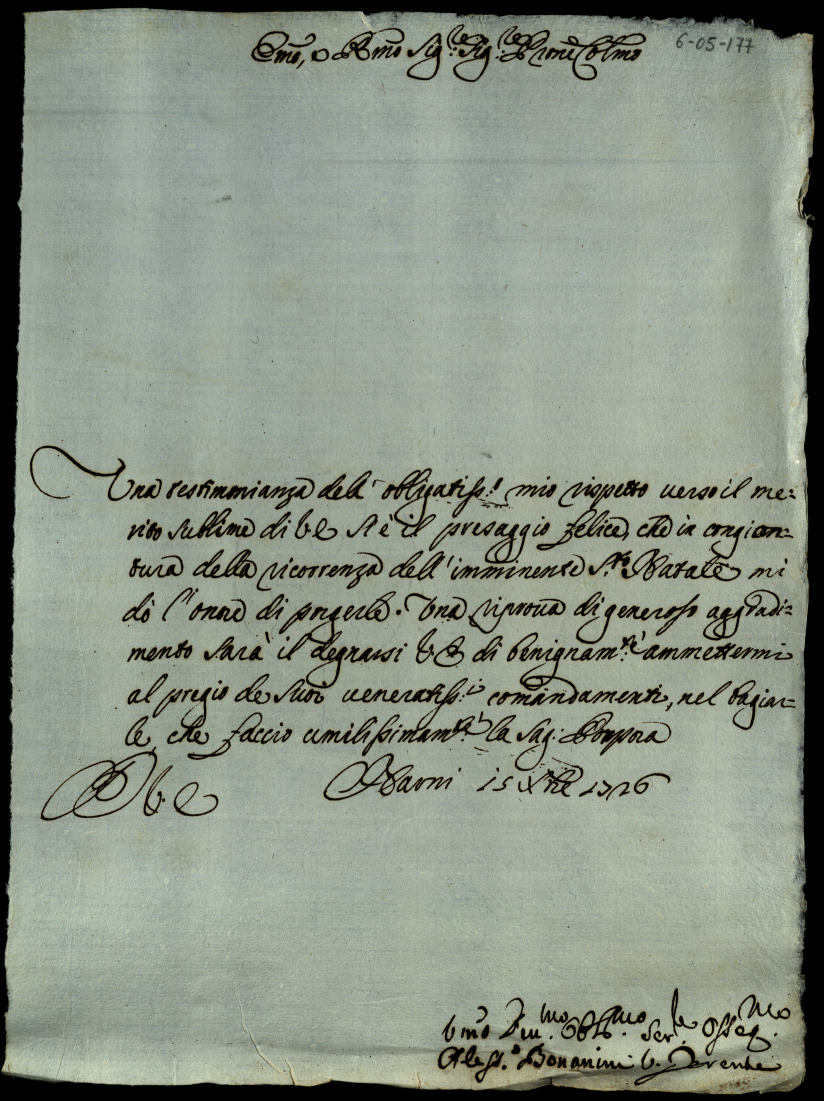 Emo, e Rmo Sig.re Sig.re Prone Colmo
6-05-177
Una testimonianza dell' obligatiss.o mio rispetto verso il me=
rito sublime di V E si è il presaggio felice, che in congion=
tura della ricorrenza dell' imminente S.to Natale mi
dò l'onore di porgerle. Una riprova di generoso aggradi=
mento sarà il degnarsi V E di benignam.te ammettermi
al pregio de suoi veneratiss.i comandamenti, nel bagiar=
le, che faccio umilissimam.te la Sag: Porpora
D V. E Narni 15 Xbre 1726
Vmo Deu.mo Obb.mo Ser.re Osseq.mo
Aless.o Bonanini V.